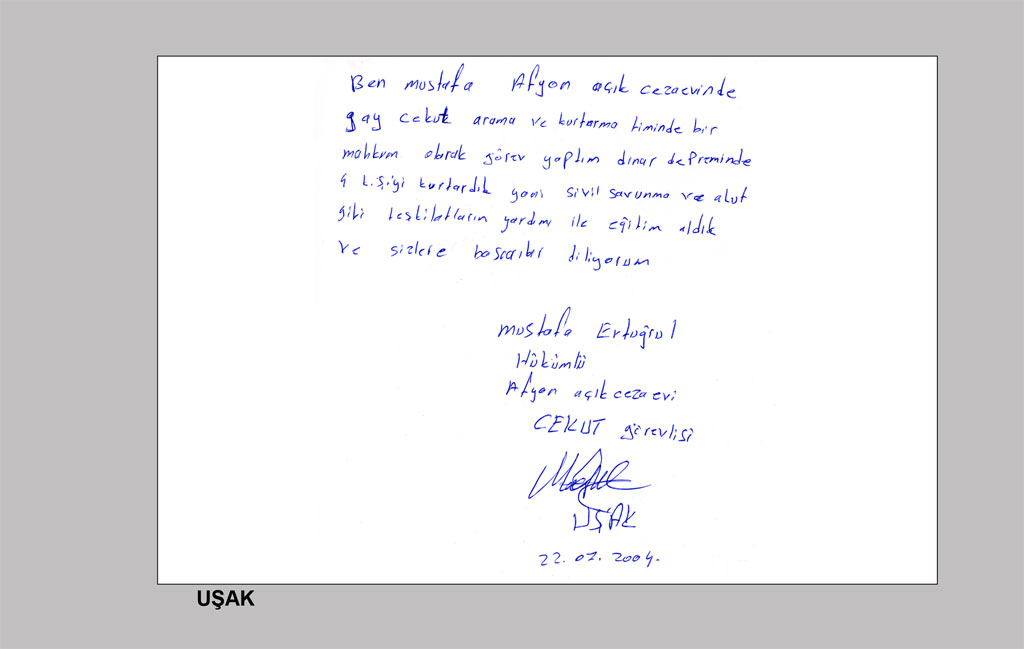 Ben mustafa Afyon açık cezaevinde
gay cekut arama ve kurtarma timinde bir
mahkum olarak görev yaptım dinar depreminde
4 kişiyi kurtardık yani sivil savunma ve akut
gibi teşkilatların yardımı ile eğitim aldık
ve sizlere başarılar diliyorum
mustafa Ertuğrul
Hükümlü
Afyon açık cezaevi
CEKUT görevlisi
UŞAK
22.07.2004.
UŞAK